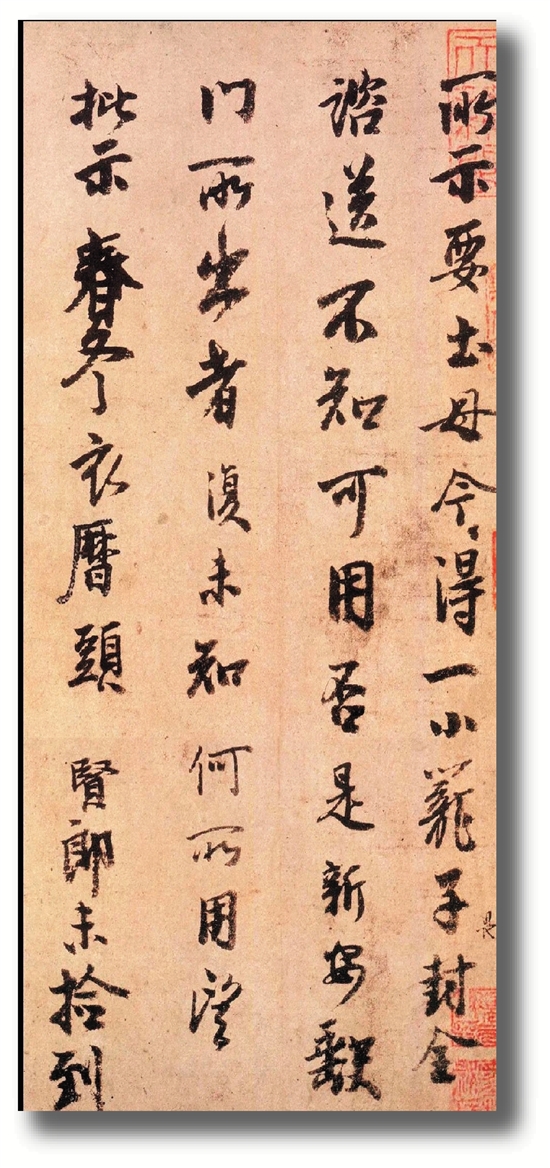 所示要土母今得一小籠子封全
諮送不知可用否是新安缺
門所出者復未知何所用望
批示春冬衣曆頭賢郎未拾到